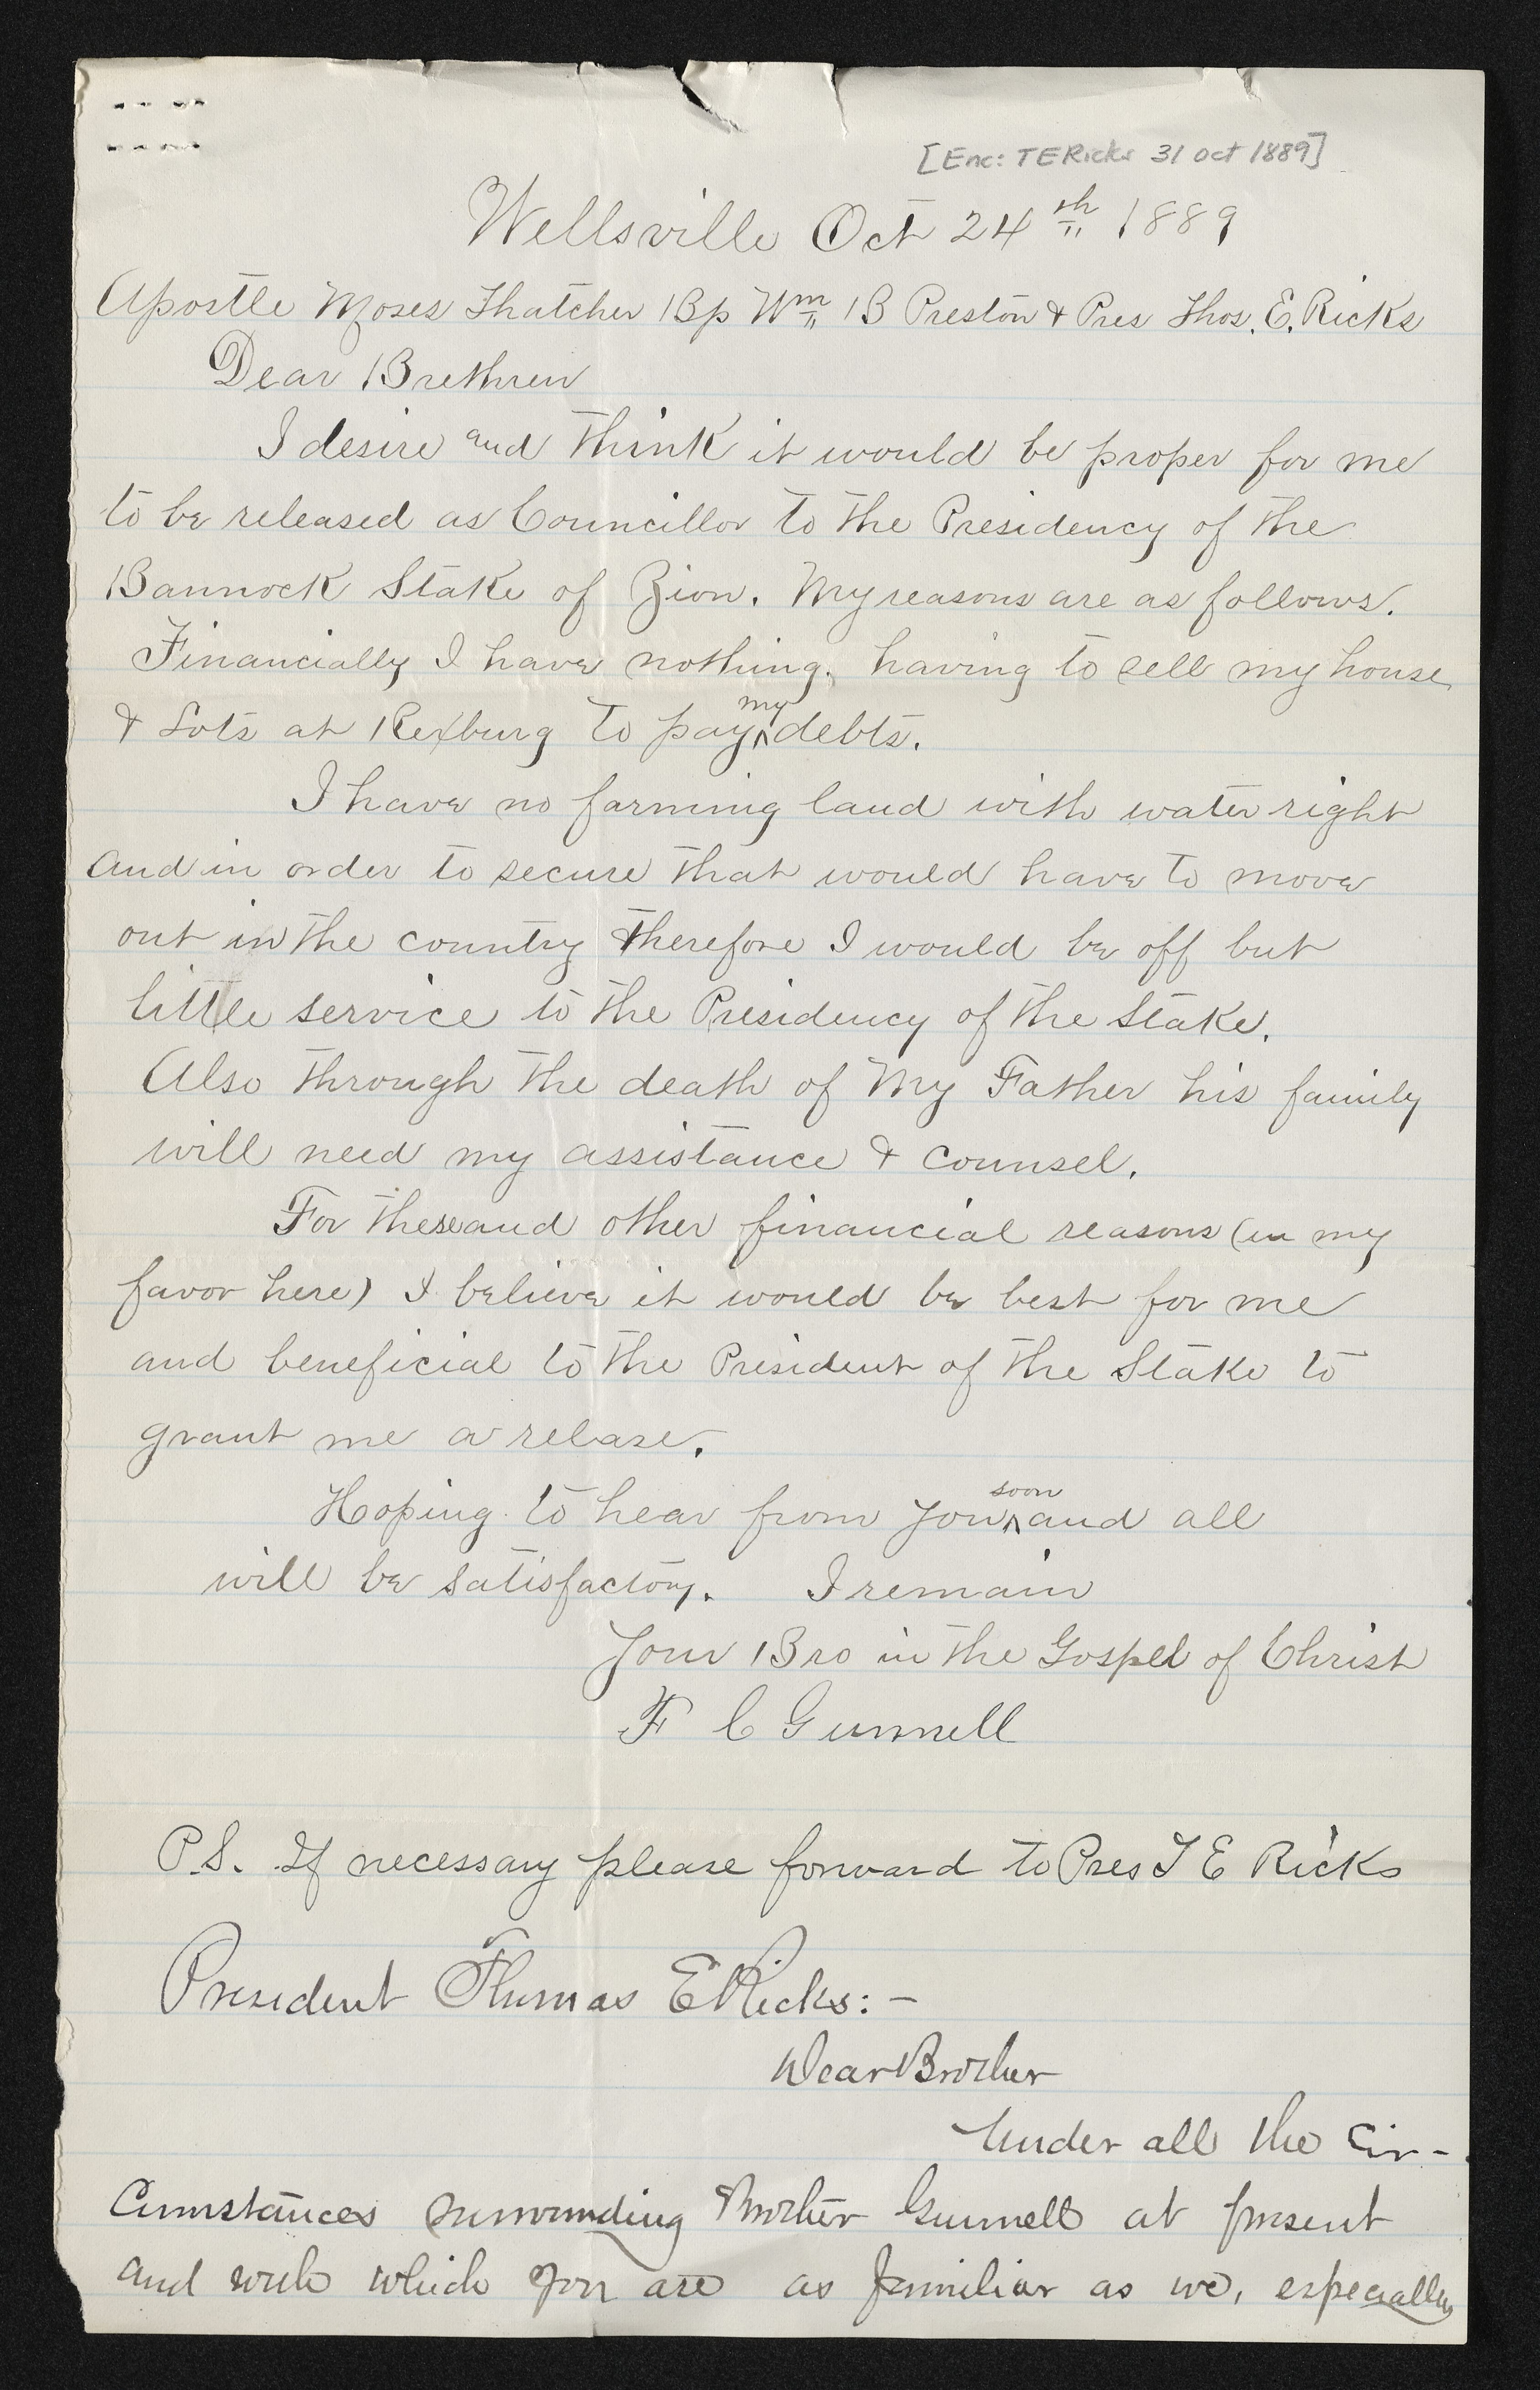 [Enc: TERicks 31 Oct 1889]
Wellsville Oct 24th 1889
Apostle Moses Thatcher Bp Wm B Preston & Pres Thos. E. Ricks
Dear Brethren
I desire and think it would be proper for me
to be released as Councillor to the Presidency of the
Bannock Stake of Zion. My reasons are as follows.
Financially I have nothing, having to sell my house
& Lots at Rexburg to pay my debts.
I have no farming land with water right
and in order to secure that would have to move
out in the country therefore I would be off but
little service to the Presidency of the Stake.
Also through the death of My Father his family
will need my assistance & counsel.
For these and other financial reasons (in my
favor here) I believe it would be best for me
and beneficial to the President of the Stake to
grant me a relase.
Hoping to hear from you soon and all
will be satisfactory. I remain
Your Bro in the Gospel of Christ
F C Gunnell
P.S. If necessary please forward to Pres T E Ricks
President Thomas E Ricks:-
Dear Brother
Under all the Cir-
cumstances surrounding Brother Gunnell at present
and with which you are as familiar as we, especially